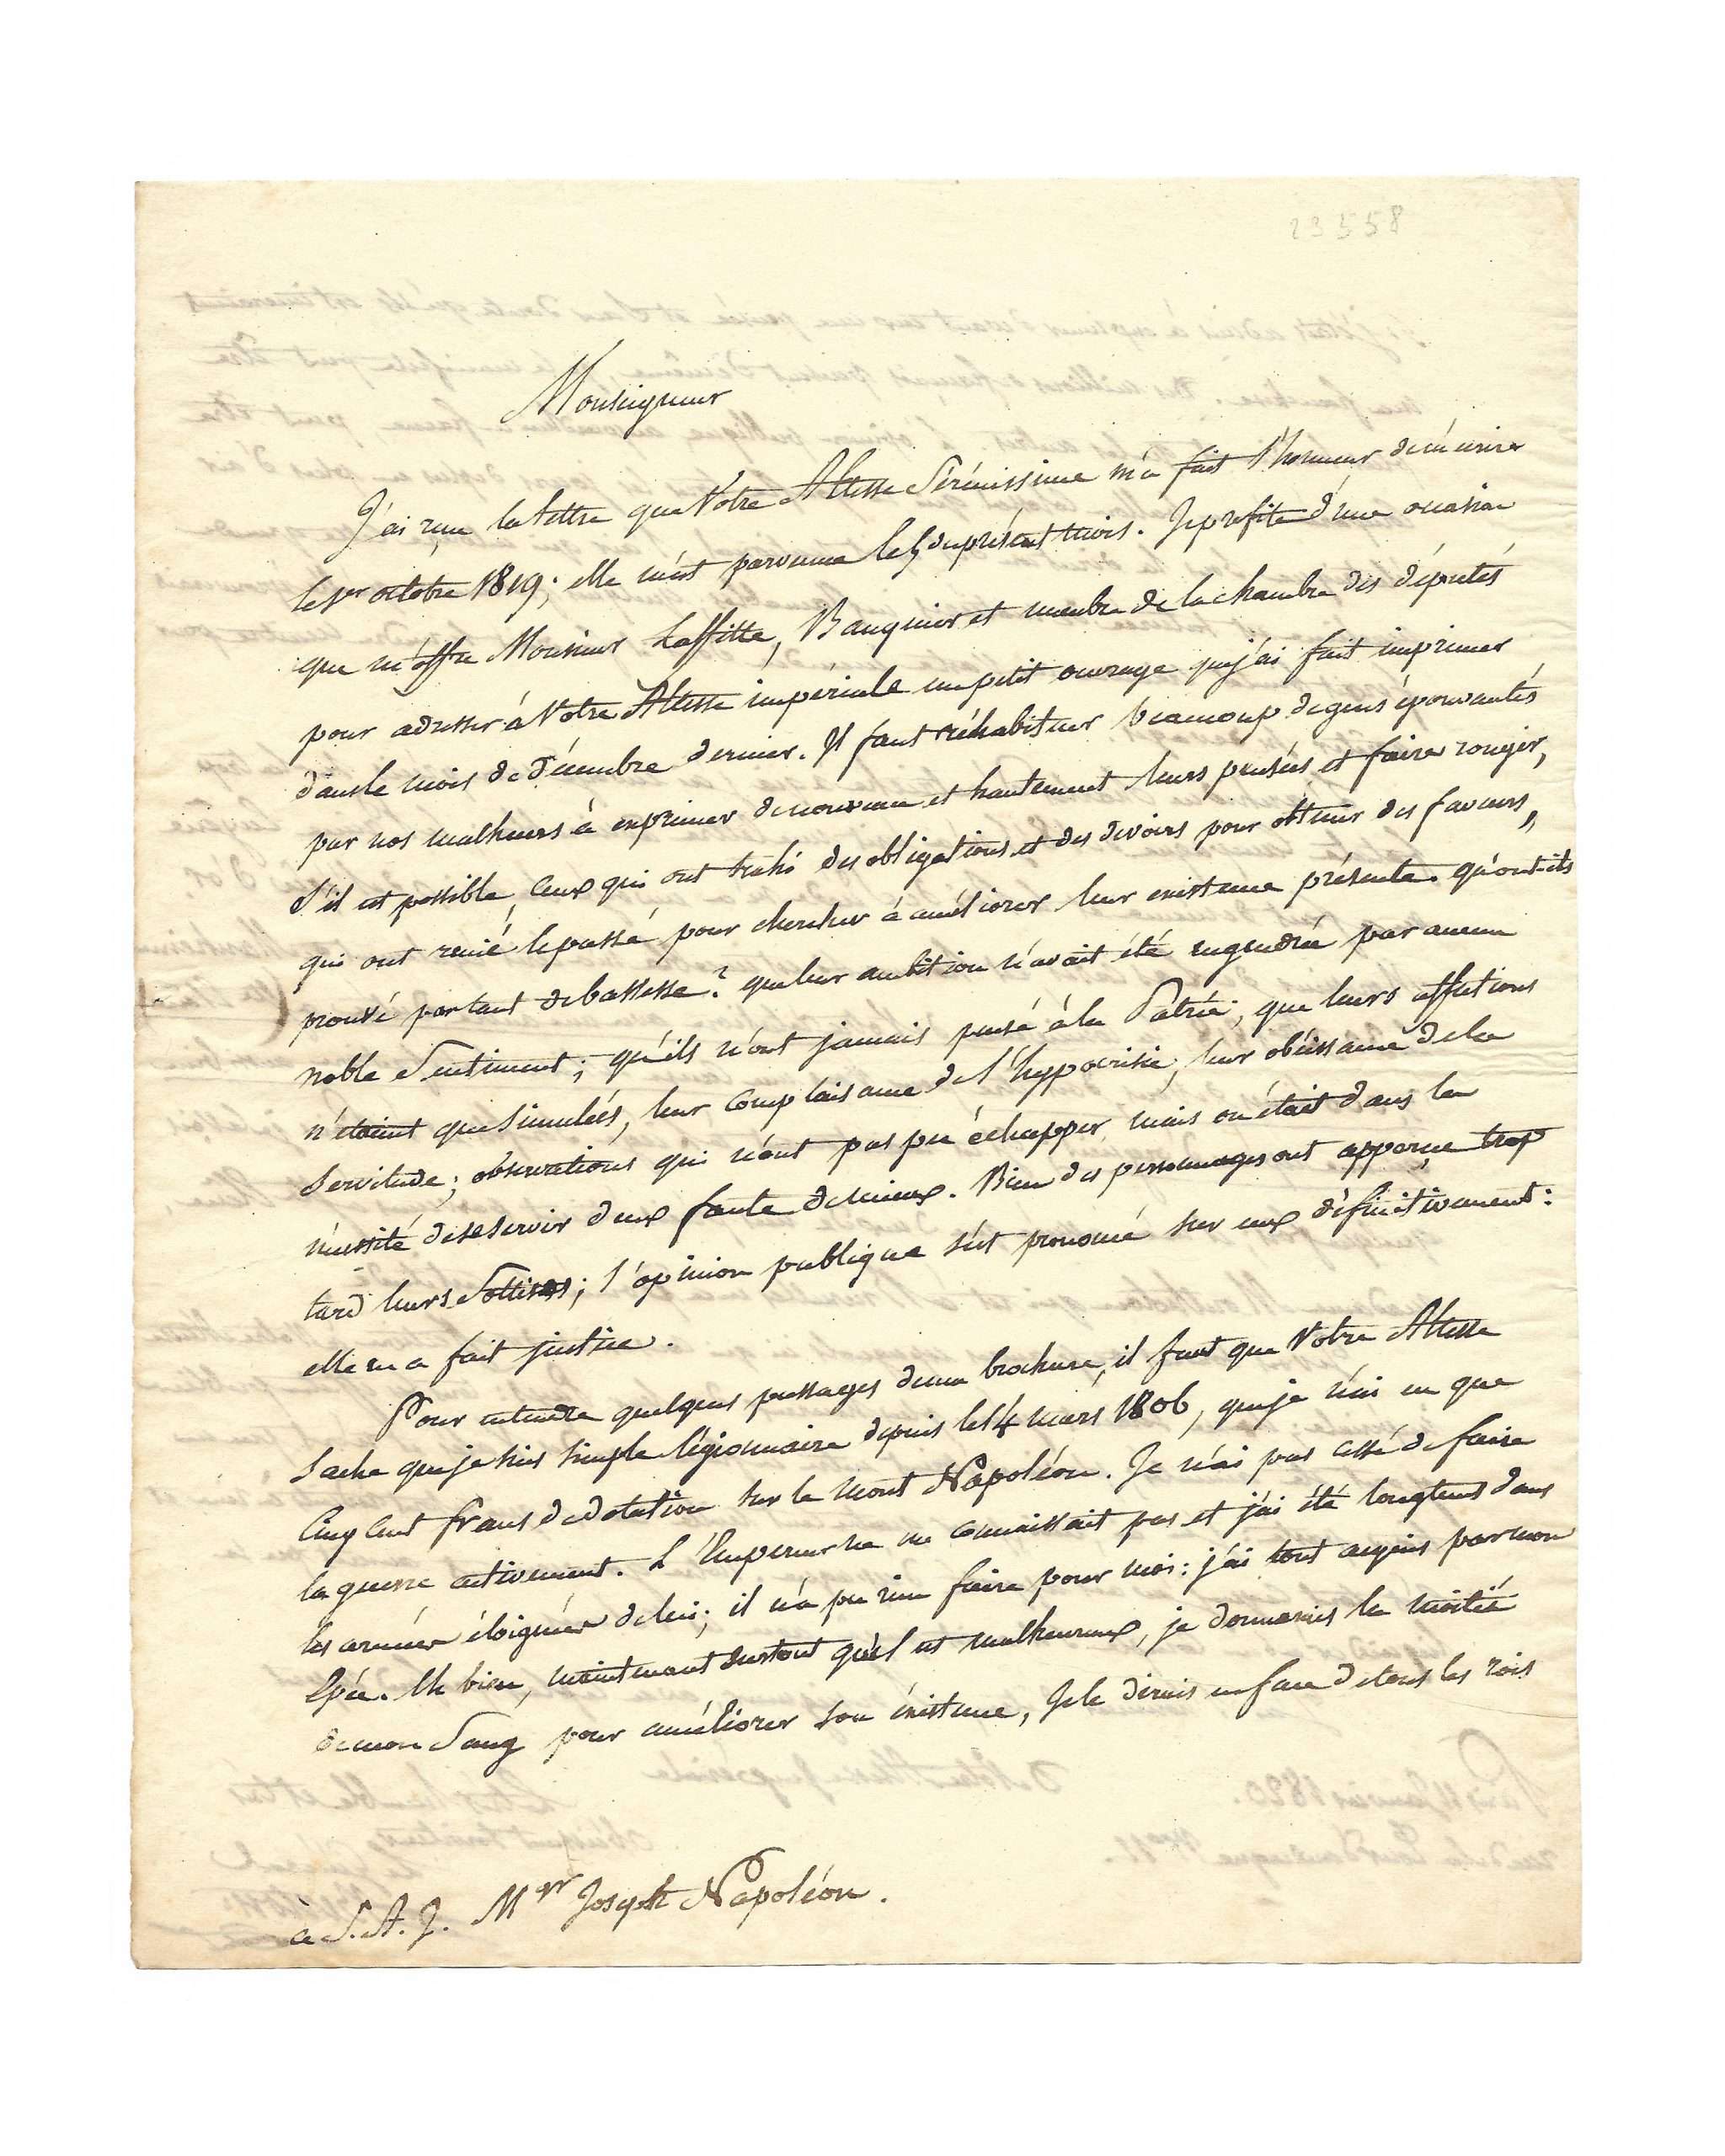 23558
Monseigneur
J'ai reçu la lettre que Votre Altesse Sérénissime m'a fait l'honneur de m'écrire
le 1er octobre 1819; elle m'est parvenue le 5 du présent mois. Je profite d'une occasion
que m'offre Monsieur Laffitte, Banquier et membre de la chambre des députés
pour adresser à Votre Altesse impériale un petit ouvrage que j'ai fait imprimer
dans le mois de décembre dernier. Il faut réhabituer beaucoup de gens épouvantés
par nos malheurs à exprimer de nouveau et hautement leurs pensées et faire rougir,
s'il est possible, ceux qui ont trahi des obligations et des devoirs pour obtenir des faveurs,
qui ont renié le passé pour chercher à améliorer leur existence présente. qu'ont-ils
prouvé par tant de bassesse? que leur ambition n'avait été engendrée par aucun
noble sentiment; qu'ils n'ont jamais pensé à la Patrie, que leurs affections
n'étaient que simulées, leur complaisance de l'hypocrisie, leur obéissance de la
servitude; observations qui n'ont pas pu échapper, mais on était dans la
nécessité de se servir d'eux faute de mieux. Bien des personnages ont apperçu trop
tard leurs sottises; l'opinion publique s'est prononcé sur eux définitivement:
elle en a fait justice.
Pour entendre quelques passages de ma brochure, il faut que Votre Altesse
sache que je suis simple légionnaire depuis le 14 mars 1806, que je n'ai eu que
cinq cent francs de dotation sur le mont Napoléon. Je n'ai pas cessé de faire
la guerre activement. L'Empereur ne me connaissait pas et j'ai été longtems dans
les armées éloignées de lui; il n'a pu rien faire pour moi: j'ai tout acquis par mon
épée. Eh bien, maintenant surtout qu'il est malheureux, je donnerais la moitié
de mon sang pour améliorer son éxistence, Je le dirais en face de tous les rois
à S. A. I. Mgr Joseph Napoléon.